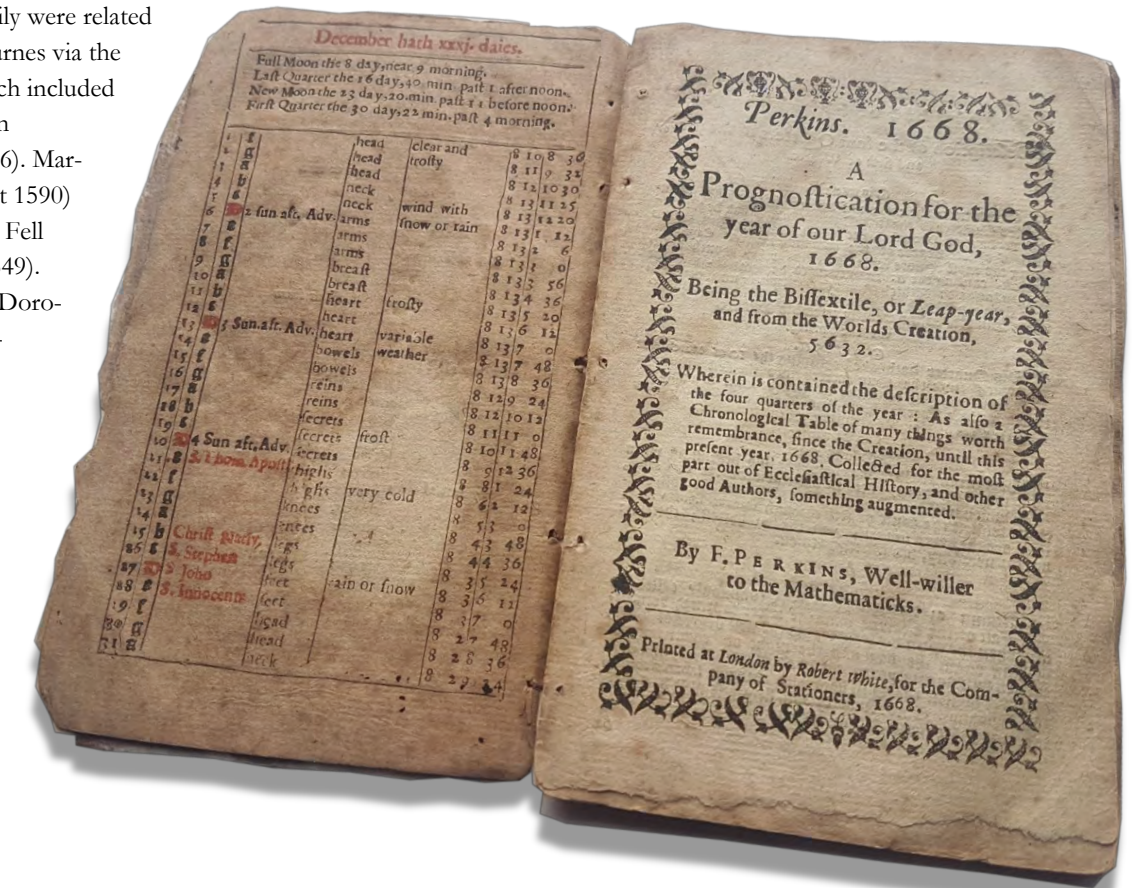 ily were related
urnes via the
ch included
n
6). Mar-
t 1590)
Fell
49).
Doro-
-
December hath xxxj. daies.
Full Moon the 8 day, near 9 morning.
Laſt Quarter the 16 day, 30 min paſt 1 after noon.
New Moon the 23 day, 20. min paſt 11 before noon.
Firſt Quarter the 30 day, 22 min. paſt 4 morning.
1 f head clear and 8 10 8 36
2 g head froſty 8 11 9 32
3 a head 8 12 10 30
4 b neck 8 13 11 25
5 neck wind with 8 13 12 20
6 2 ſun aft. Adv. arms ſnow or rain 8 13 1 12
7 arms 8 13 2 6
8 f arms 8 13 3 0
9 g breaſt 8 13 3 56
10 a breaſt 8 13 4 36
11 b heart froſty 8 13 5 20
12 heart 8 13 6 12
13 3 Sun. aft. Adv. heart variable 8 13 7 0
14 bowels weather 8 13 7 48
15 f bowels 8 13 8 36
16 g reins 8 12 9 24
17 a reins 8 12 10 12
18 b ſecrets 8 11 11 0
19 ſecrets froſt 8 10 11 48
20 4 Sun aft. Adv ſecrets 8 9 12 36
21 S. Thom. Apoſt thighs 8 8 1 24
22 f thighs very cold 8 6 2 12
23 g knees 8 5 3 0
24 a knees 8 4 3 48
25 b Chriſt nativ, legs 8 4 4 36
26 S. Stephen legs 8 3 5 24
27 S John feet rain or ſnow 8 3 6 12
28 S. Innocents feet 8 3 7 0
29 f head 8 2 7 48
30 g head 8 2 8 36
31 a neck 8 2 9 24
Perkins. 1668.
A
Prognoſtication for the
year of our Lord God,
1668.
Being the Biſſextile, or Leap-year,
and from the Worlds Creation,
5632.
Wherein is contained the deſcription of
the four quarters of the year : As alſo a
Chronological Table of many things worth
remembrance, ſince the Creation, until this
preſent year, 1668. Collected for the moſt
part out of Eccleſiaſtical Hiſtory, and other
good Authors, ſomething augmented.
By F. PERKINS, Well-willer
to the Mathematicks.
Printed at London by Robert White, for the Com-
pany of Stationers, 1668.